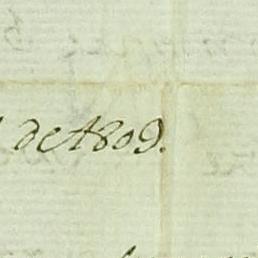 de 1809.